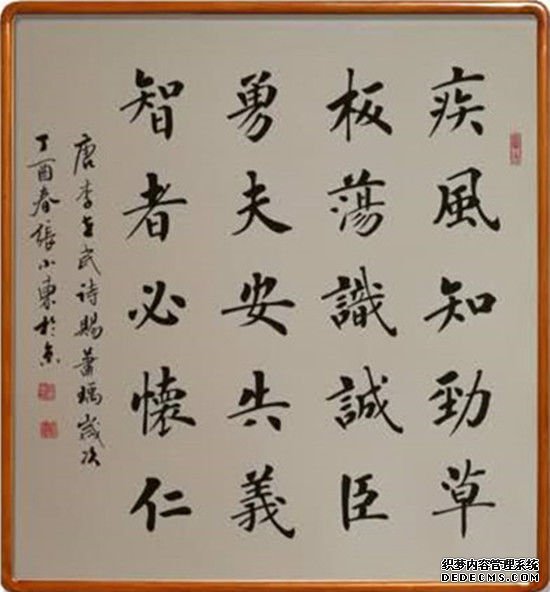 疾風知勁草
板蕩識誠臣
勇夫安共義
智者必懷仁
唐李世民詩賜蕭瑀歲次
丁酉春張小東於京
织梦内容管理系统
DEDECMS.COM